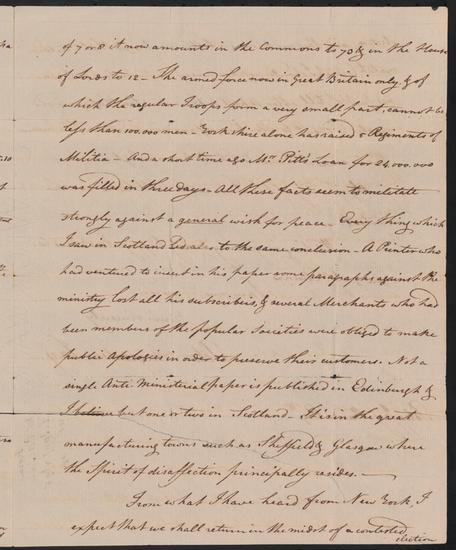 of 7 or 8 it now amounts in the Commons to 70 & in the House
of Lords to 12 — The armed force now in Great Britain only, & of
which the regular Troops form a very small part, cannot be
less than 100,000 men — Yorkshire alone has raised Regiments of
Militia — And a short time ago Mr. Pitt's Loan for 24,000,000
was filled in three days — All these facts seem to militate
strongly against a general wish for peace — Every thing which
I saw in Scotland led also to the same conclusion — A Printer who
had ventured to insert in his paper some paragraphs against the
ministry lost all his subscribers, & several Merchants who had
been members of the popular Societies were obliged to make
public Apologies in order to preserve their customers. Not a
single Anti Ministerial paper is published in Edinburgh &
I believe but one or two in Scotland — It is in the great
manufacturing towns such as Sheffield & Glasgow where
the Spirit of disaffection principally resides. —
From what I have heard from New York, I
expect that we shall return in the midst of a contested
election